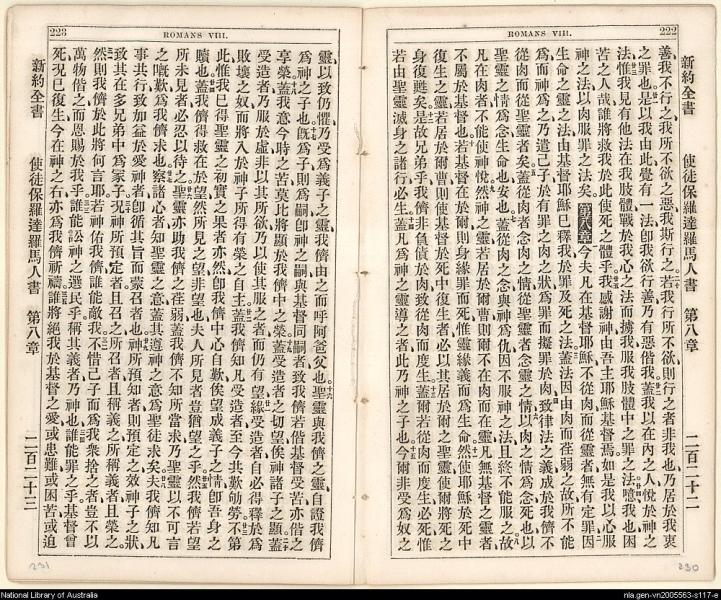 222
ROMANS VIII.
新約全書
使徒保羅達羅馬人書
第八章
二百二十二
善、我不行之、我所不欲之惡、我斯行之、若我行所不欲、則行之者非我也、乃居於我衷
之罪也、是以我由此覺有一法、卽我欲行善、乃有惡偕我、蓋我以在內之人、悅於神之
法、惟我見有他法在我肢體、戰於我心之法、而擄我服我肢體中之罪之法、噫、我也困
苦之人哉、誰將救我於此使死之體乎、我感謝神由吾主耶穌基督焉、如是我以心服
神之法、以肉服罪之法矣、第八章今夫凡在基督耶穌、不從肉而從靈者、無有定罪、因
生命之靈之法、由基督耶穌已釋我於罪及死之法、蓋法因由肉而荏弱之故、所不能
為而神為之、乃遣己子於有罪之肉之狀、為罪而擬罪於肉、致律法之義成於我儕不
從肉而從聖靈者矣、蓋從肉者念肉之情、從聖靈者念靈之情、以肉之情為念死也、以
聖靈之情為念生命也、安也、蓋從肉之念與神為仇、因不服神之法、且終不能服之、故
凡在肉者不能使神悅、然神之靈若居於爾曹、則爾不在肉而在靈、凡無基督之靈者
不屬於基督也、若基督在於爾、則身緣罪而死、惟靈緣義而為生命、然使耶穌於死中
復生之靈、若居於爾曹、則使基督於死中復生者、必以其居於爾之聖靈、使爾將死之
身復甦矣、是故兄弟乎、我儕非負債於肉、致從肉而度生、蓋爾若從肉而度生必死、惟
若由聖靈滅身之諸行、必生、蓋凡為神之靈導之者、此乃神之子也、今爾非受為奴之
230
223
ROMANS VIII.
靈以致仍懼、乃受為義子之靈、我儕由之而呼阿爸父也、聖靈與我儕之靈、自證我儕
為神之子也、旣為子則為嗣、卽神之嗣與基督同嗣者、致我儕若偕基督受苦、亦偕之
享榮、蓋我意今時之苦、莫比將顯於我儕中之榮、蓋受造者之切望、俟神諸子之顯、蓋
受造者乃服於虛、非以其所欲、乃以使其服之者、而仍有望、緣受造者自必得釋於為
敗壞之奴、而將入於神子所得有榮之自主、蓋我儕知凡受造者、至今共歎劬勞、不第
此、惟我已得聖靈之初實之果者亦然、卽我儕中心自歎、俟望成義子之情、卽吾身之
贖也、蓋我儕得救在於望、然所見之望非望也、夫人所見者豈猶望之乎、然我儕若望
所未見者、必忍以待之、聖靈亦助我儕之荏弱、蓋我儕不知所當求、乃聖靈以不可言
之嘅歎為我儕求也、察諸心者知聖靈之意、蓋其遵神之意為聖徒求矣、夫我儕知凡
事共行致加益於愛神者、卽循其旨而蒙召者也、神所預知者、則預定之效神子之狀、
致其在多兄弟中為冢子、況神所預定者且召之、所召者且稱義之、所稱義者且榮之、
然則我儕於此將何言耶、若神佑我儕、誰能敵我、不惜己子而為我衆捨之者、豈不以
萬物偕之而恩賜於我乎、誰能訟神之選民乎、稱其義者乃神也、誰能罪之乎、基督曾
死、況已復生、今在神之右、亦為我儕祈禱、誰將絕我於基督之愛、或患難、或困苦、或迫
新約全書
使徒保羅達羅馬人書
第八章
二百二十三
231
National Library of Australia
nla.gen-vn2005563-s117-e